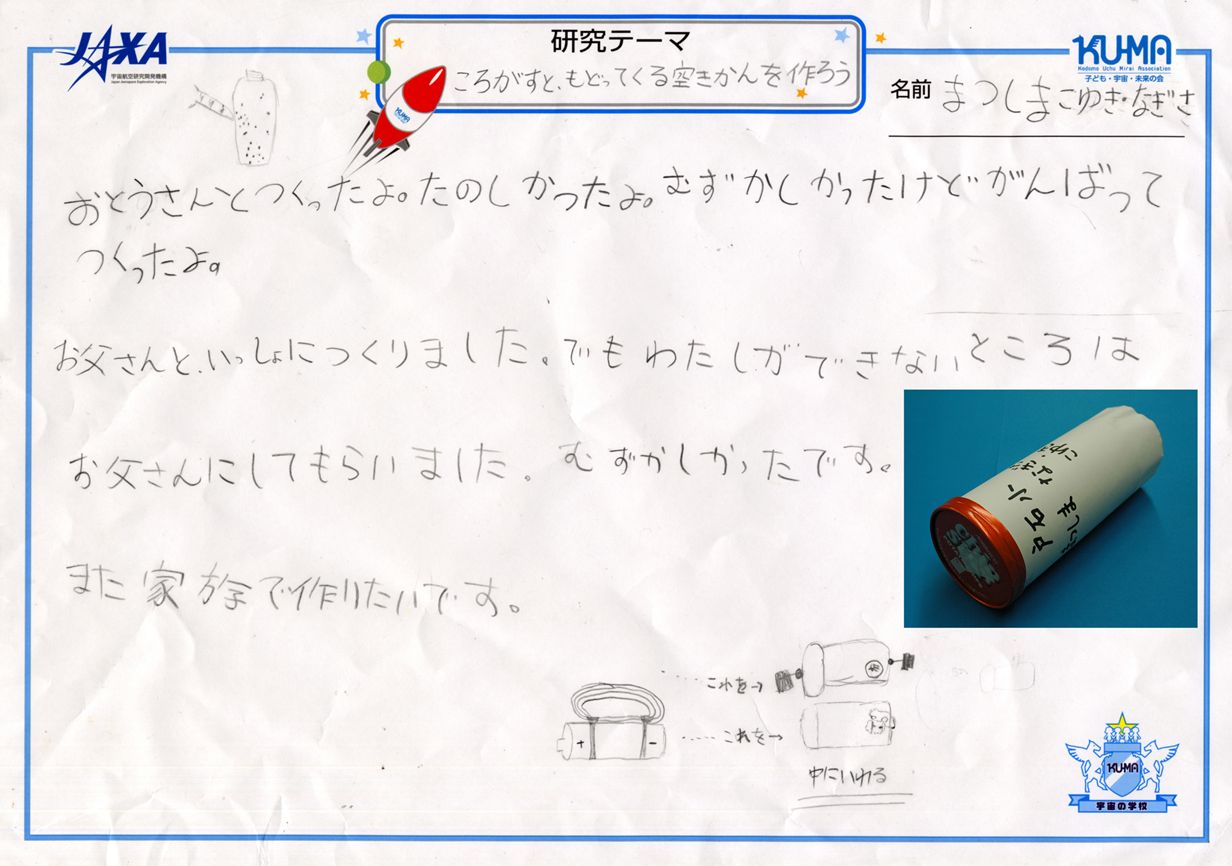 JAXA
宇宙航空研究開発機構
Japan Aerospace Exploration Agency
研究テーマ
ころがすと、もどってくる空きかんを作ろう
KUMA
KU-MA
Kodomo Uchu Mirai Association
子ども・宇宙・未来の会
名前 まつしまこゆき・なぎさ
おとうさんとつくったよ。たのしかったよ。むずかしかったけどがんばって
つくったよ。
お父さんと、いっしょにつくりました。でもわたしができないところは
お父さんにしてもらいました。むずかしかったです。
また家族で作りたいです。
戸石小
なぎ
しま
こゆ
これを→
+ −
これを→
中にいれる
KU-MA
宇宙の学校